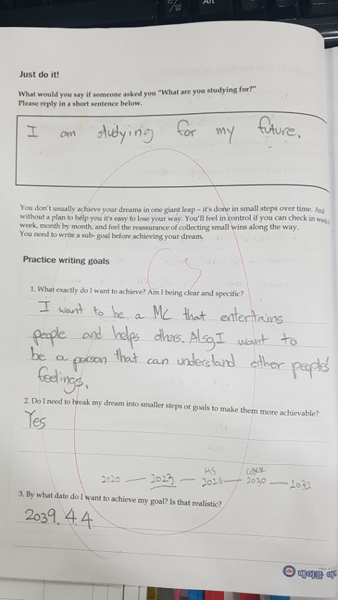 Just do it!
What would you say if someone asked you "What are you studying for?"
Please reply in a short sentence below.
I am studying for my future.
You don't usually achieve your dreams in one giant leap – it's done in small steps over time. And
without a plan to help you it's easy to lose your way. You'll feel in control if you can check in week
week, month by month, and feel the reassurance of collecting small wins along the way.
You need to write a sub- goal before achieving your dream.
Practice writing goals
1. What exactly do I want to achieve? Am I being clear and specific?
I want to be a MC that entertains
people and helps others. Also I want to
be a person that can understand other people's
feelings.
2. Do I need to break my dream into smaller steps or goals to make them more achievable?
Yes
HS
2020 — 2023 — 2026 — 2030 — 2032
3. By what date do I want to achieve my goal? Is that realistic?
2039. 4. 4